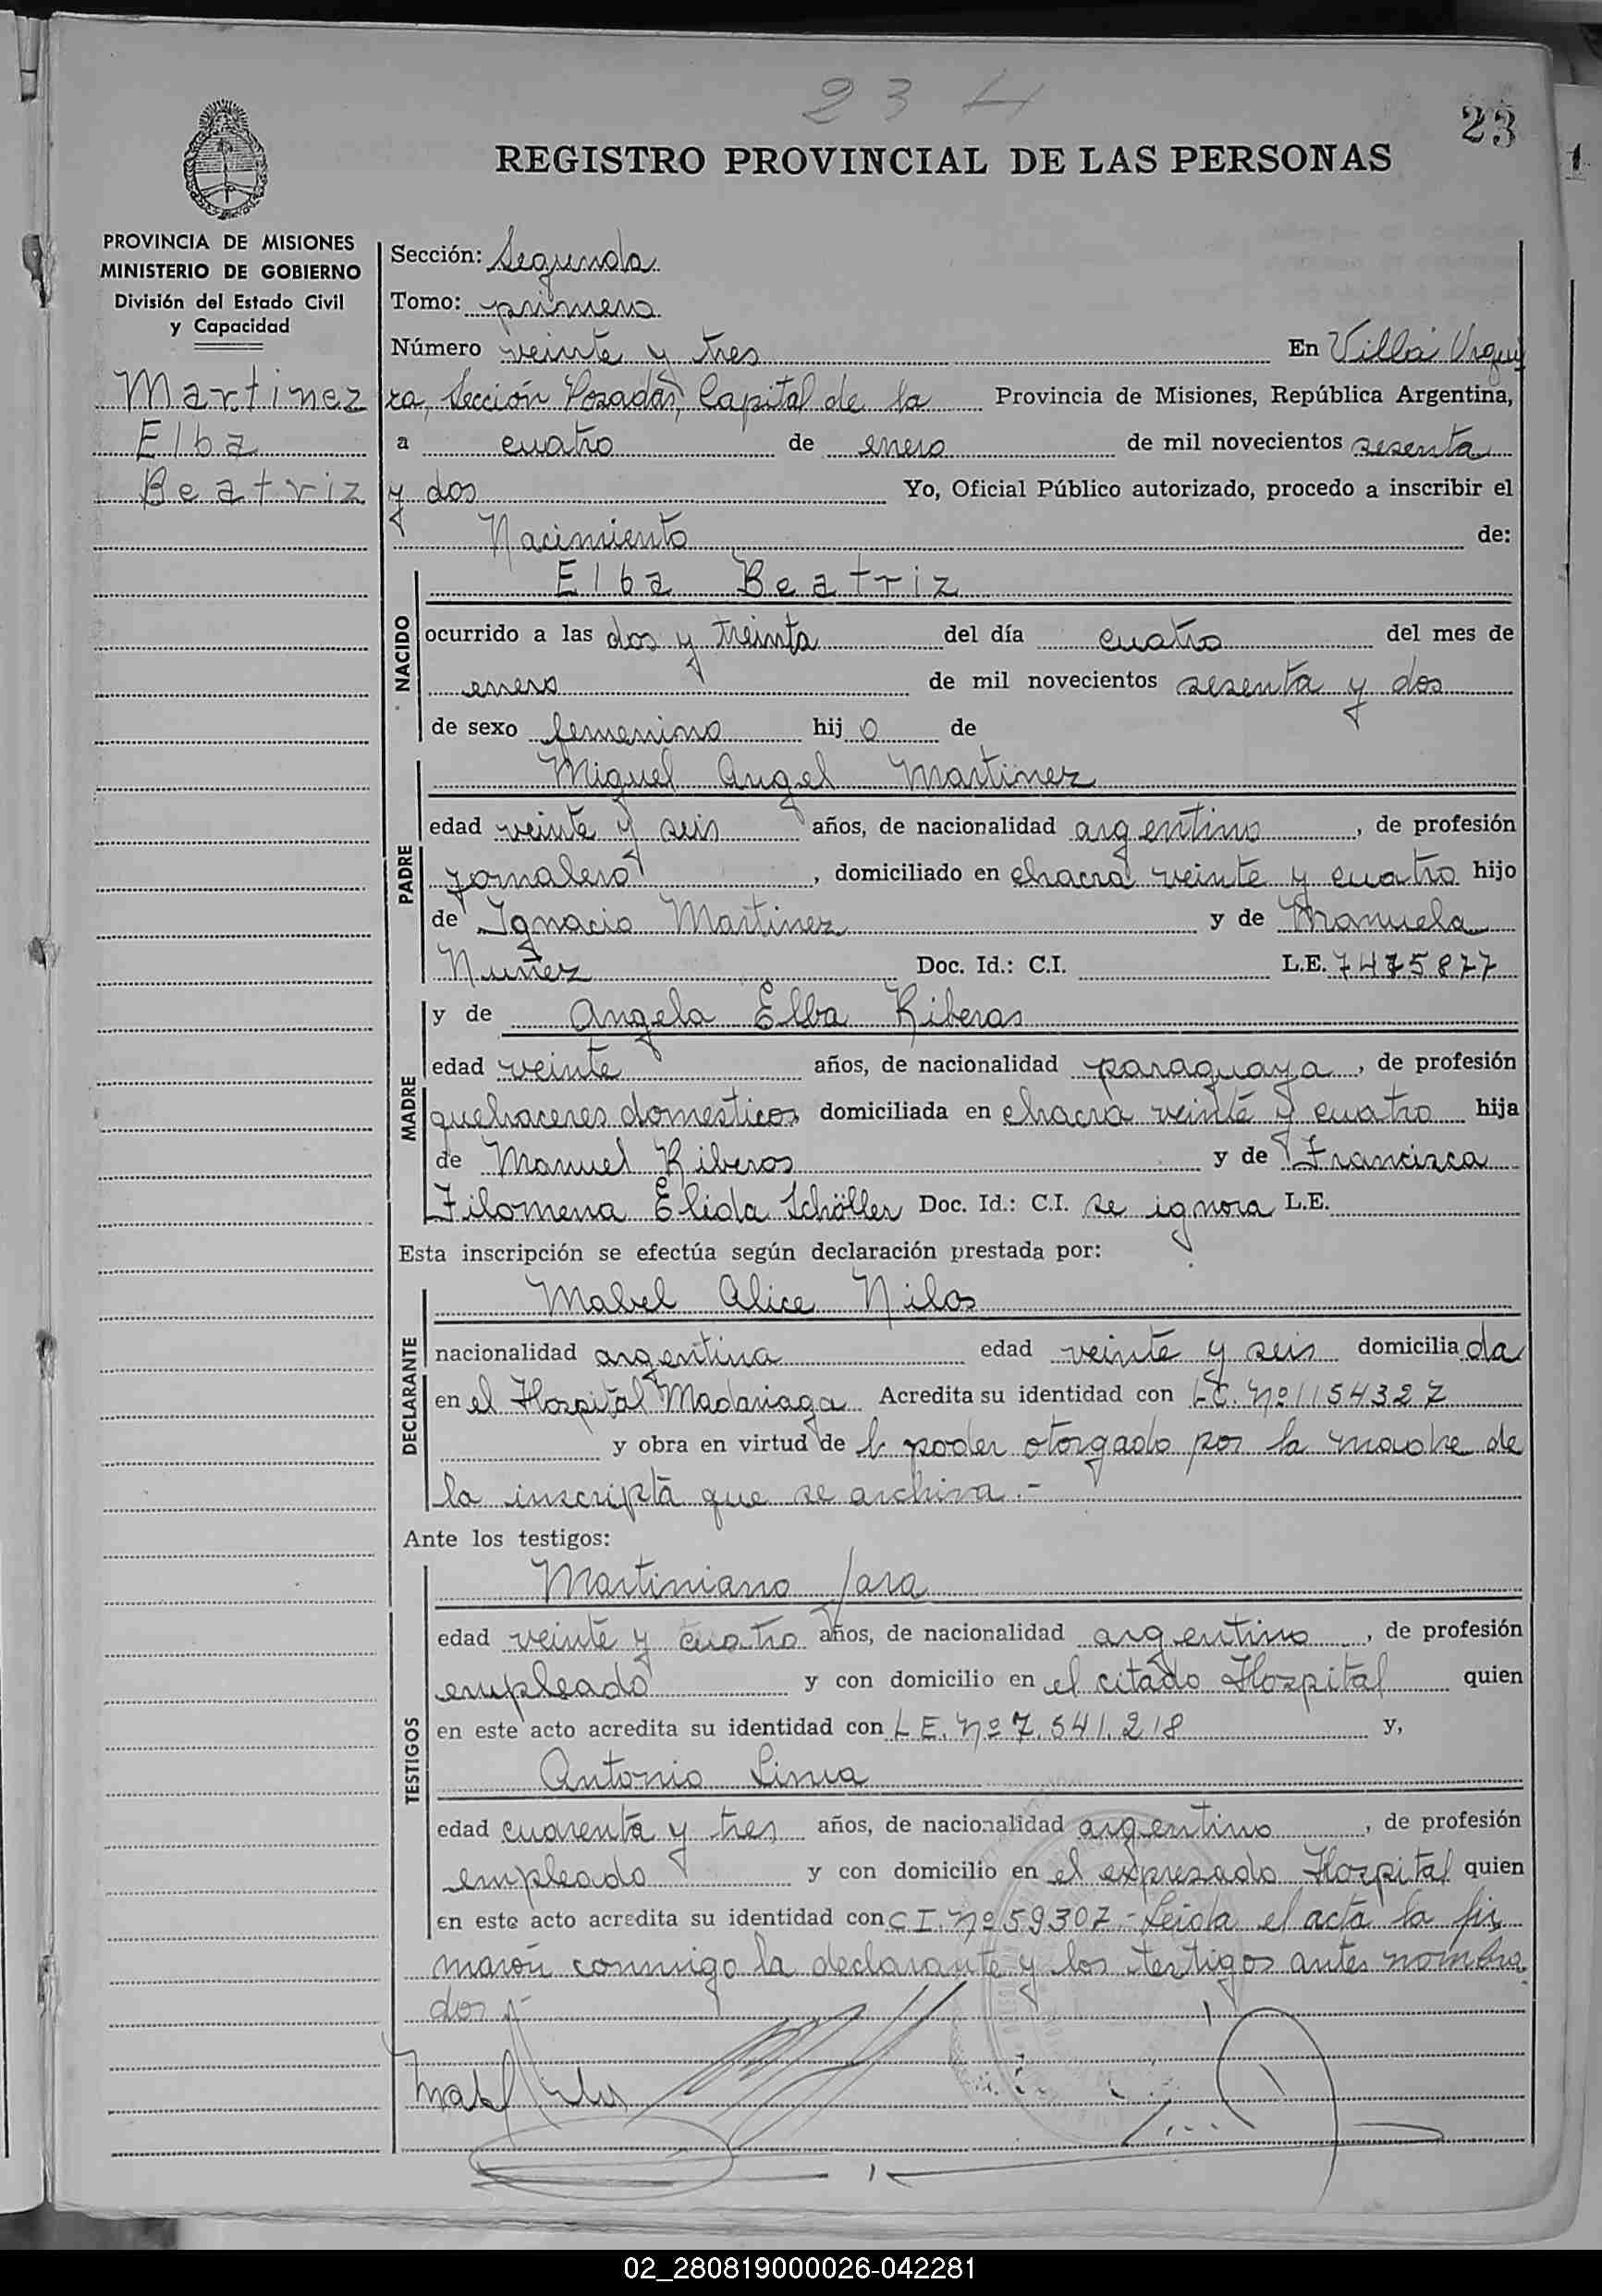 23 H
23
REGISTRO PROVINCIAL DE LAS PERSONAS
1
PROVINCIA DE MISIONES
MINISTERIO DE GOBIERNO
División del Estado Civil
y Capacidad
Martinez
Elba
Beatriz
Sección: Segunda
Tomo: primero
Número veinte y tres En Villa Urqui
za, Sección Posadas, Capital de la Provincia de Misiones, República Argentina,
a cuatro de enero de mil novecientos sesenta
y dos Yo, Oficial Público autorizado, procedo a inscribir el
Nacimiento de:
NACIDO
Elba Beatriz
ocurrido a las dos y treinta del día cuatro del mes de
enero de mil novecientos sesenta y dos
de sexo femenino hij a de
PADRE
Miguel Angel Martinez
edad veinte y seis años, de nacionalidad argentino, de profesión
jornalero, domiciliado en chacra veinte y cuatro hijo
de Ignacio Martinez y de Manuela
Nuñez Doc. Id.: C.I. L.E. 7475877
MADRE
y de Angela Elba Riberos
edad veinte años, de nacionalidad paraguaya, de profesión
quehaceres domesticos domiciliada en chacra veinte y cuatro hija
de Manuel Riberos y de Francisca
Filomena Elida Schöller Doc. Id.: C.I. se ignora L.E.
Esta inscripción se efectúa según declaración prestada por:
DECLARANTE
Mabel Alice Nilos
nacionalidad argentina edad veinte y seis domicilia da
en el Hospital Madariaga Acredita su identidad con L.C. Nº 1154327
y obra en virtud de poder otorgado por la madre de
la inscripta que se archiva.-
Ante los testigos:
TESTIGOS
Martiniano Jara
edad veinte y cuatro años, de nacionalidad argentino, de profesión
empleado y con domicilio en el citado Hospital quien
en este acto acredita su identidad con L.E. Nº 7.541.218 y,
Antonio Lima
edad cuarenta y tres años, de nacionalidad argentino, de profesión
empleado y con domicilio en el expresado Hospital quien
en este acto acredita su identidad con C.I. Nº 59307- Leida el acta la fir
maron conmigo la declarante y los testigos antes nombra
dos
02_280819000026-042281